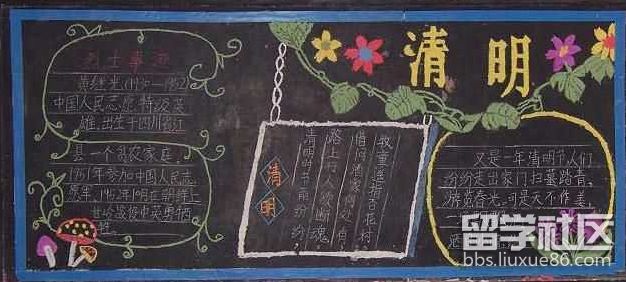 烈士事迹
黄继光(1930—1952)
中国人民志愿特级英
雄,出生于四川
县一个贫农家庭。
1951年参加中国人民志
愿军,1952年10月在朝鲜上
甘岭战役中英勇牺
牲。
清明
清明
清明时节雨纷纷
路上行人欲断魂
借问酒家何处有
牧童遥指杏花村
又是一年清明节,人们
纷纷走出家门扫墓踏青,
游览春光,可是天不作美,
一
留学社区
bbs.liuxue86.com